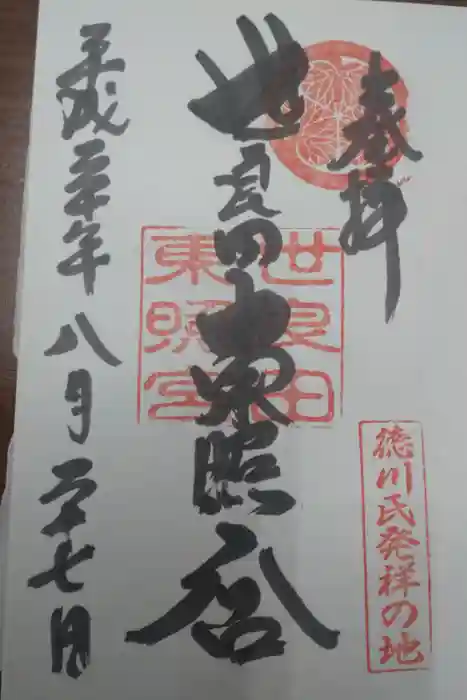 奉拝
世良田東照宮
世良田
東照宮
徳川氏発祥の地
平成三十年八月二十七日